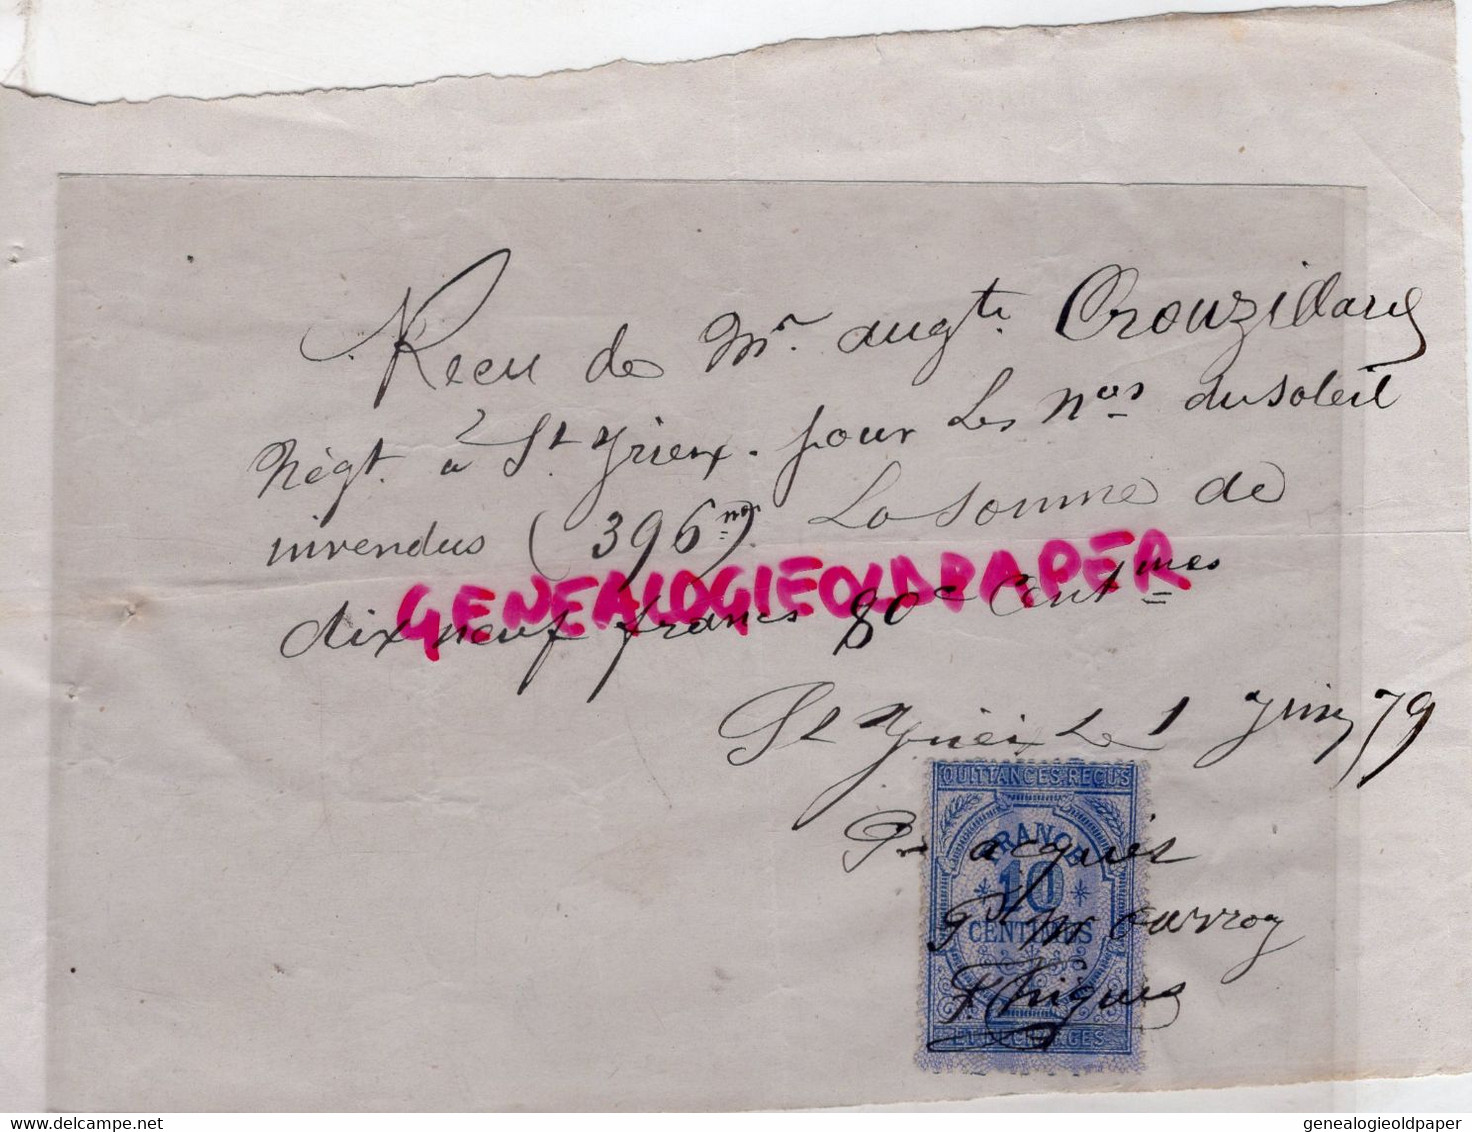 Recu de Mr. augte. Crouzillard
Négt. à St. Yrieix. pour Les Nos du Soleil
invendus (396 nos) La Somme de
dix neuf francs 80c Centmes
GENEALOGIEOLDPAPER
St Yrieix Le 1 Juin 79
QUITTANCES, REÇUS
Pr acquis
FRANCE
10
CENTIMES
ET DÉCHARGES
genealogieoldpaper